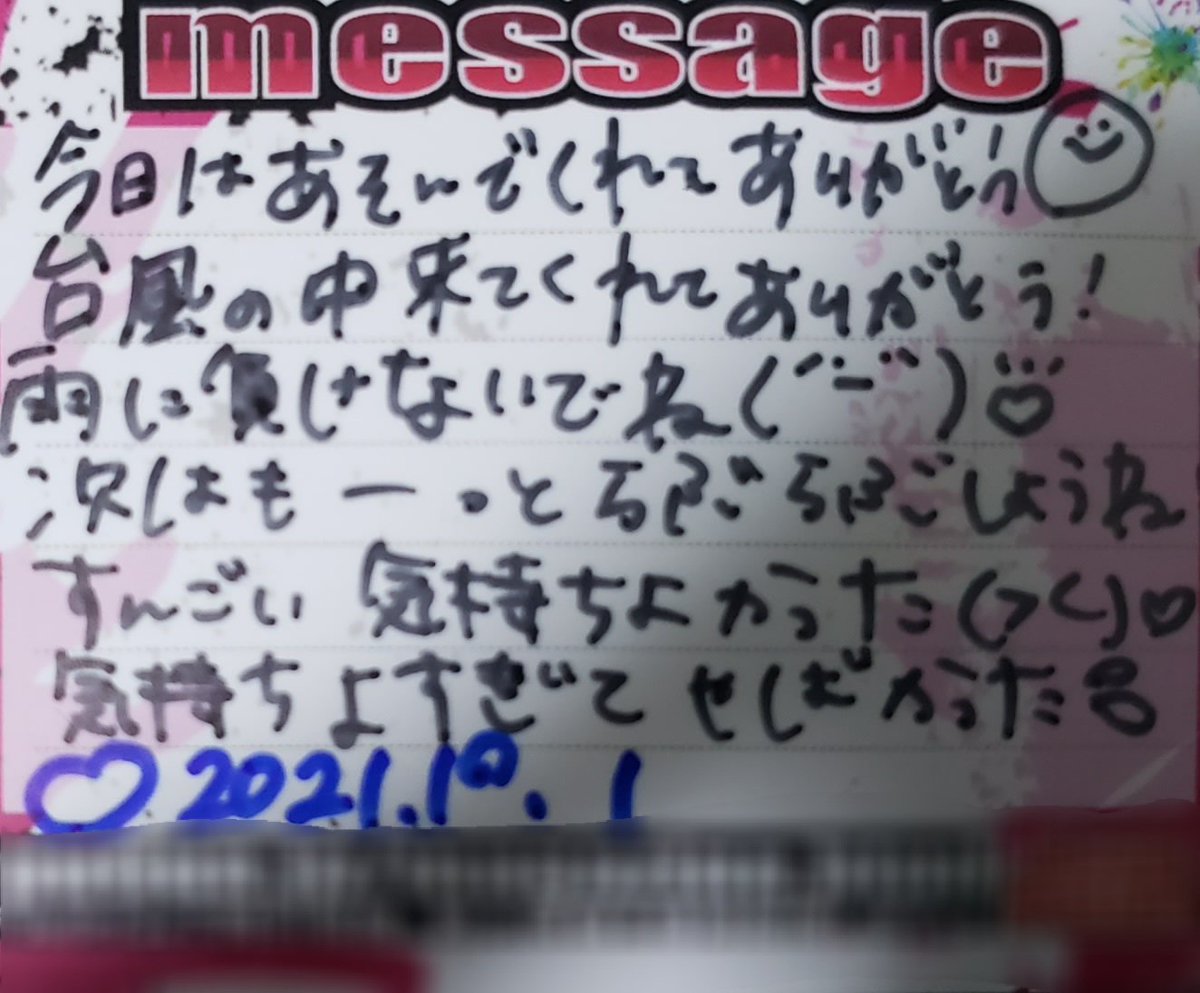 message
今日はあそんでくれてありがとう
台風の中来てくれてありがとう!
雨に負けないでね(´ー`)
次はもーっと しようね
すんごい 気持ちよかった(><)♡
気持ちよすぎて やばかった
♡2021.10.1